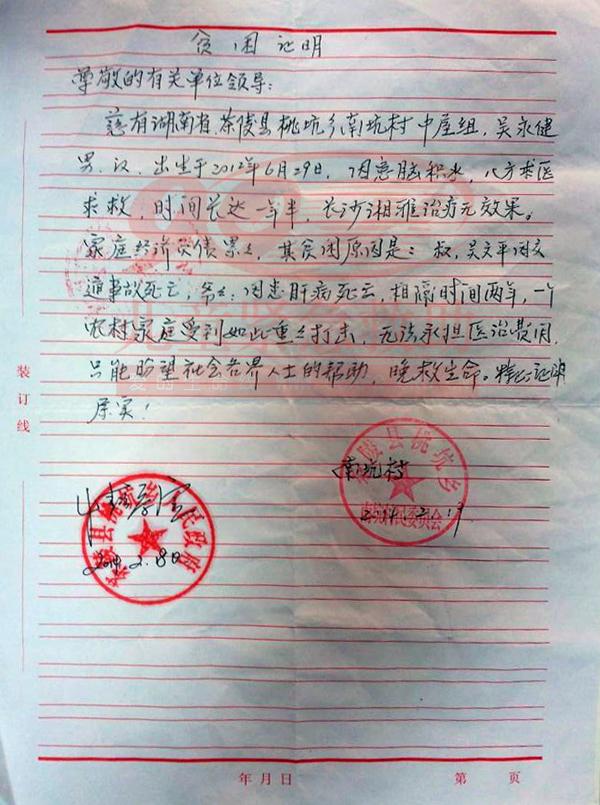 贫困证明
尊敬的有关单位领导:
兹有湖南省茶陵县桃坑乡南坑村中屋组,吴永健
男,汉,出生于2012年6月29日,因患脑积水,八方求医
求救,时间长达一年半,长沙湘雅治疗无效果。
家庭经济负债累々,其贫困原因是:叔,吴文平因交
通事故死亡,爷々:因患肝病死亡,相隔时间两年,一个
农村家庭受到如此重大打击,无法承担医治费用,
只能盼望社会各界人士的帮助,晚救生命。特此证明
属实!
南坑村
茶陵县桃坑乡
南坑村民委员会
茶陵县桃坑乡人民政府
2014.2.18日
装订线
年月日
第 页